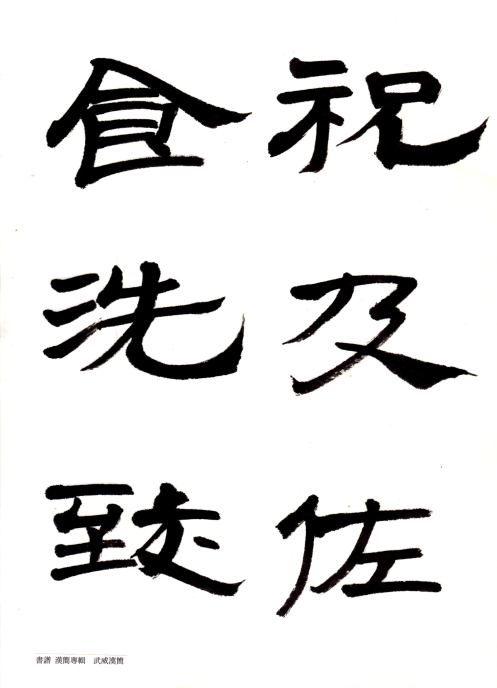 祝及佐
食洗致
書譜 漢簡專輯　武威漢簡